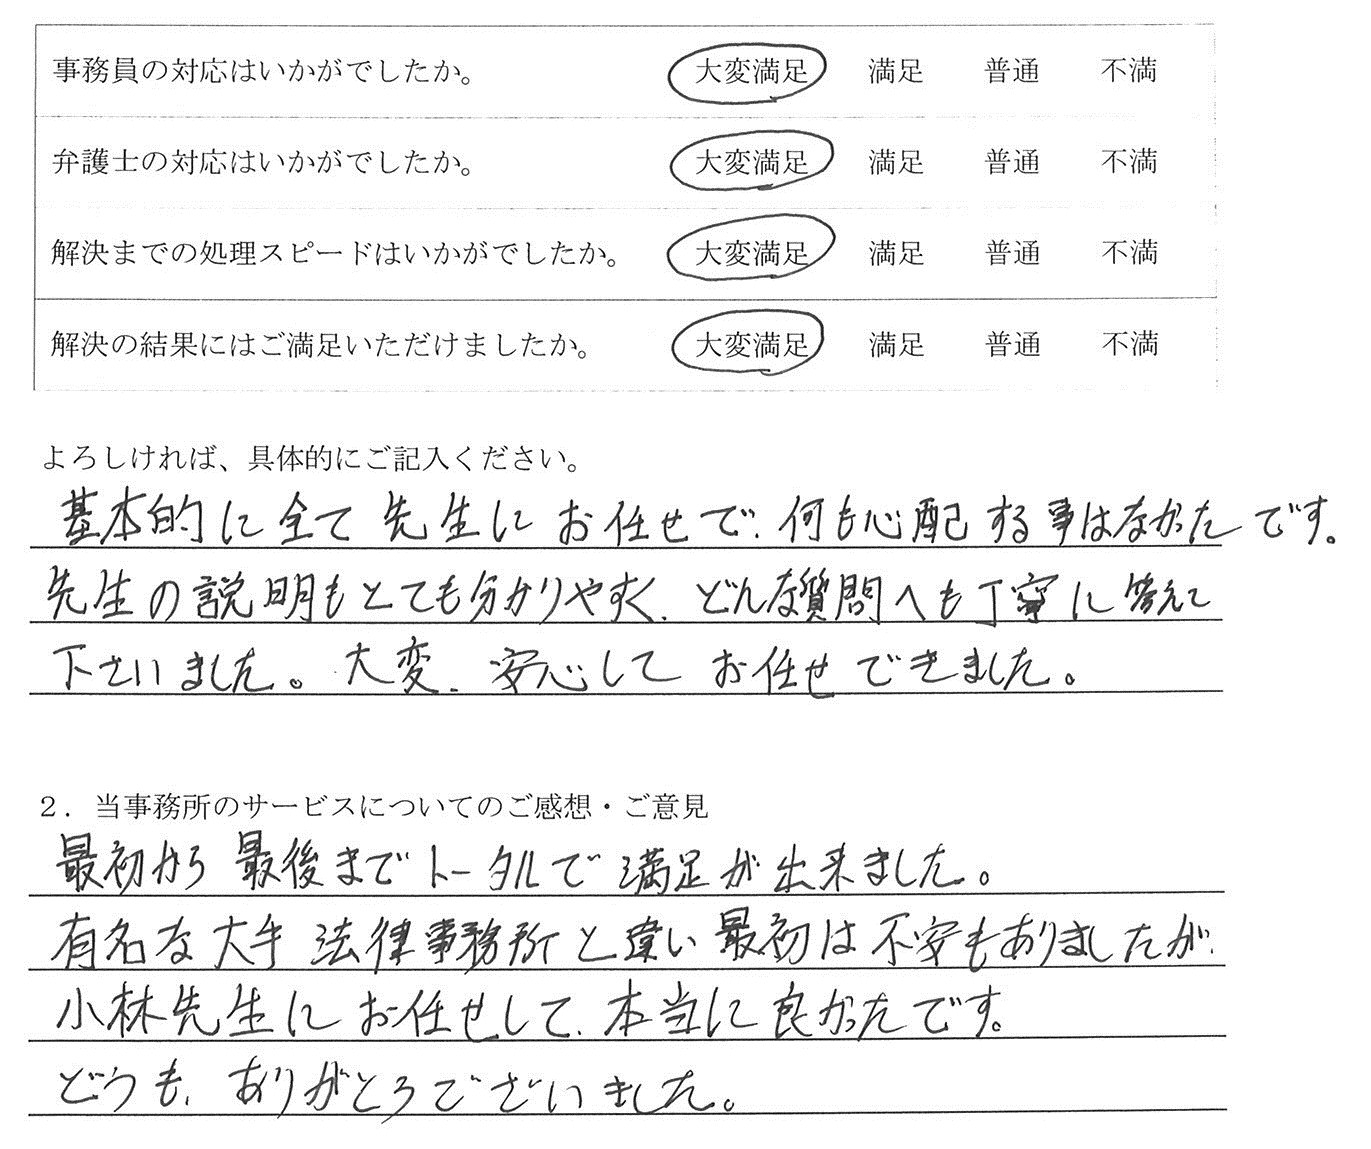 事務員の対応はいかがでしたか。 大変満足 満足 普通 不満
弁護士の対応はいかがでしたか。 大変満足 満足 普通 不満
解決までの処理スピードはいかがでしたか。 大変満足 満足 普通 不満
解決の結果にはご満足いただけましたか。 大変満足 満足 普通 不満
よろしければ、具体的にご記入ください。
基本的に全て先生にお任せで、何も心配する事はなかったです。
先生の説明もとても分かりやすく、どんな質問へも丁寧に答えて
下さいました。大変、安心してお任せできました。
2．当事務所のサービスについてのご感想・ご意見
最初から最後までトータルで満足が出来ました。
有名な大手法律事務所と違い最初は不安もありましたが、
小林先生にお任せして、本当に良かったです。
どうも、ありがとうございました。